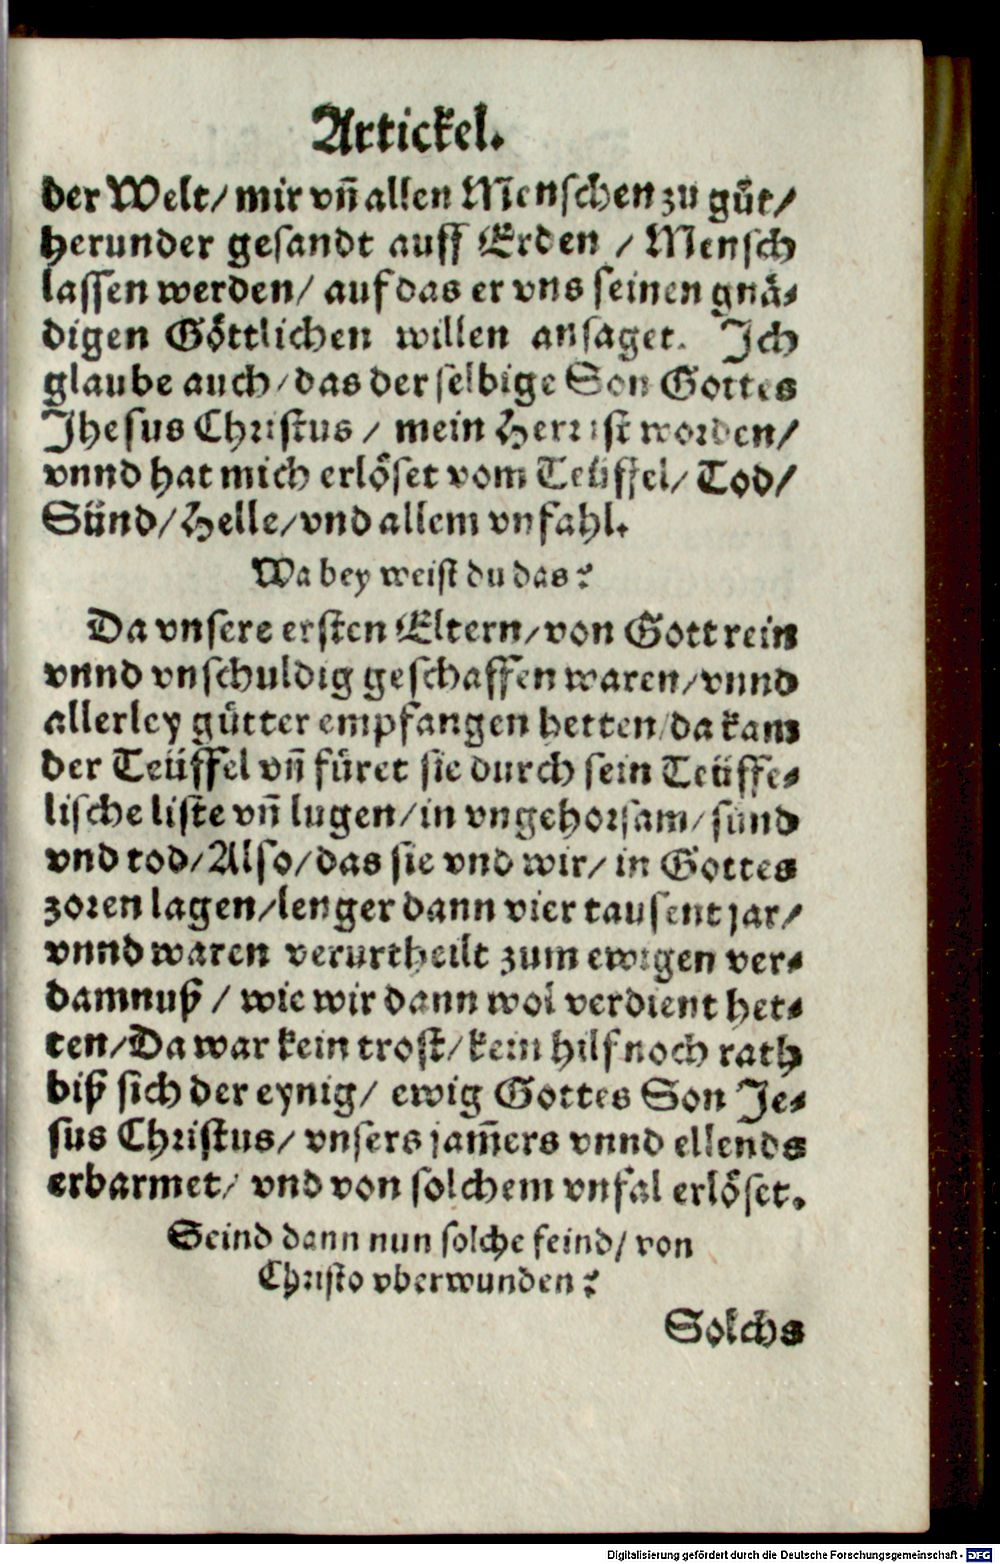 Artickel.
der Welt/ mir vn̄ allen Menschen zu gůt/
herunder gesandt auff Erden / Mensch
lassen werden/ auf das er vns seinen gnå-
digen Göttlichen willen ansaget. Ich
glaube auch/ das der selbige Son Gottes
Jhesus Christus / mein Herr ist worden/
vnnd hat mich erlöset vom Teüffel/ Tod/
Sünd/ Helle/ vnd allem vnfahl.
Wa bey weist du das?
Da vnsere ersten Eltern/ von Gott rein
vnnd vnschuldig geschaffen waren/ vnnd
allerley gütter empfangen hetten/ da kam
der Teüffel vn̄ füret sie durch sein Teüffe-
lische liste vn̄ lugen/ in vngehorsam/ sünd
vnd tod/ Also/ das sie vnd wir/ in Gottes
zoren lagen/ lenger dann vier tausent jar/
vnnd waren verurtheilt zum ewigen ver-
damnuß / wie wir dann wol verdient het-
ten/ Da war kein trost/ kein hilf noch rath
biß sich der eynig/ ewig Gottes Son Je-
sus Christus/ vnsers jam̄ers vnnd ellends
erbarmet/ vnd von solchem vnfal erlöset.
Seind dann nun solche feind/ von
Christo vberwunden?
Solchs
Digitalisierung gefördert durch die Deutsche Forschungsgemeinschaft - DFG